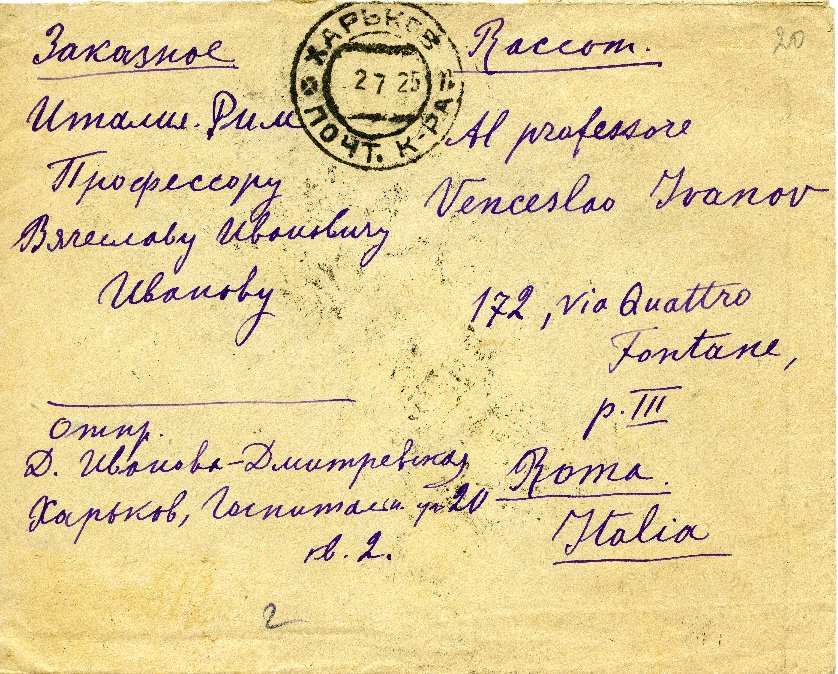 20
ХАРЬКОВ
2 7 25
ПОЧТ. К-РА
Заказное
Италия. Рим
Профессору
Вячеславу Ивановичу
Иванову
Raccom.
Al professore
Venceslao Ivanov
172, via Quattro
Fontane,
p. III
Roma.
Italia
Отпр.
Д. Иванова-Дмитревская
Харьков, 20
кв. 2.
2